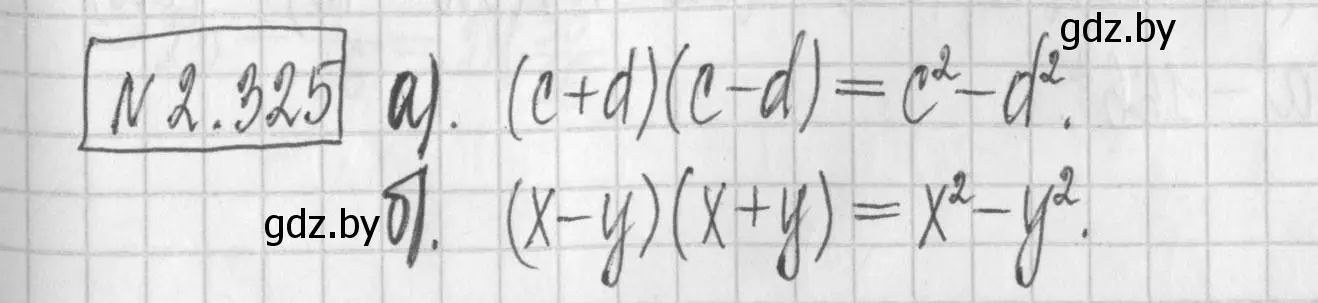 gdz.by
N 2.325 а). (c+d)(c-d)=c²-d².
gdz.by б). (x-y)(x+y)=x²-y².